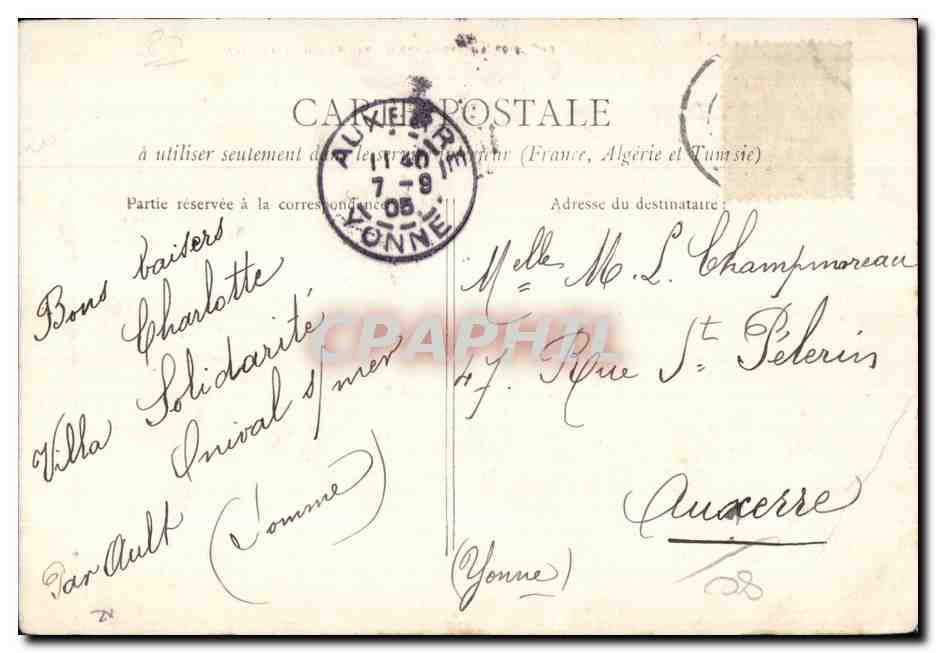 CARTE POSTALE
à utiliser seulement dans le service intérieur (France, Algérie et Tunisie)
AUXERRE
11 40
7 - 9
05
YONNE
Partie réservée à la correspondance
Adresse du destinataire
Bons baisers
Charlotte
Villa Solidarité
Onival s/mer
Par Ault (Somme)
Melles M. L. Champmoreau
47. Rue St Pélerin
Auxerre
(Yonne)
CPAPHIL